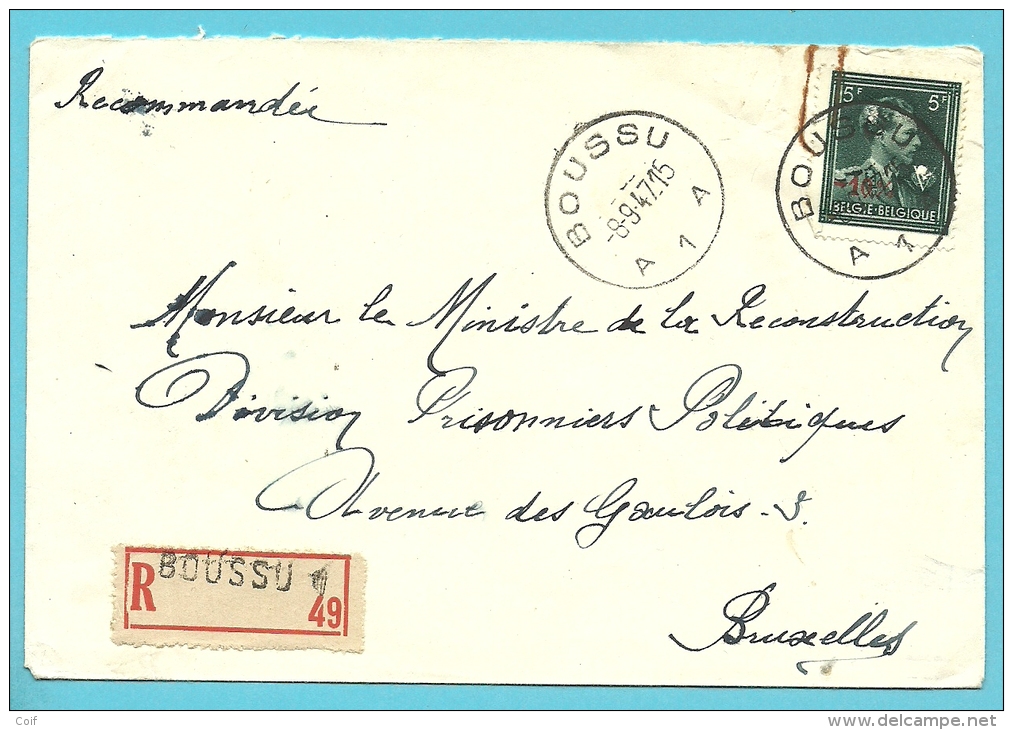 Recommandée
BOUSSU
-8-9-47.15
A 1 A
5F 5F
BOUSSU
BELGIE-BELGIQUE
A 1
Monsieur le Ministre de la Reconstruction
Division Prisonniers Politiques
Avenue des Gaulois
Bruxelles
R BOUSSU 1
49
Coif
delcampe.net